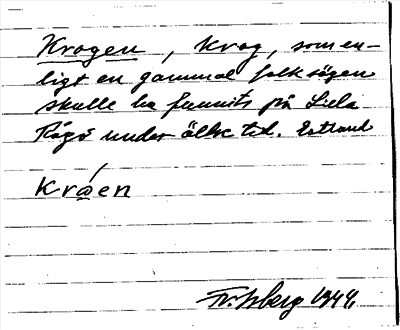 Krogen, krog, som en-
ligt en gammal folksägen
skulle ha funnits på Lilla
Rågö under äldre tid. Estland
Kråen
1944